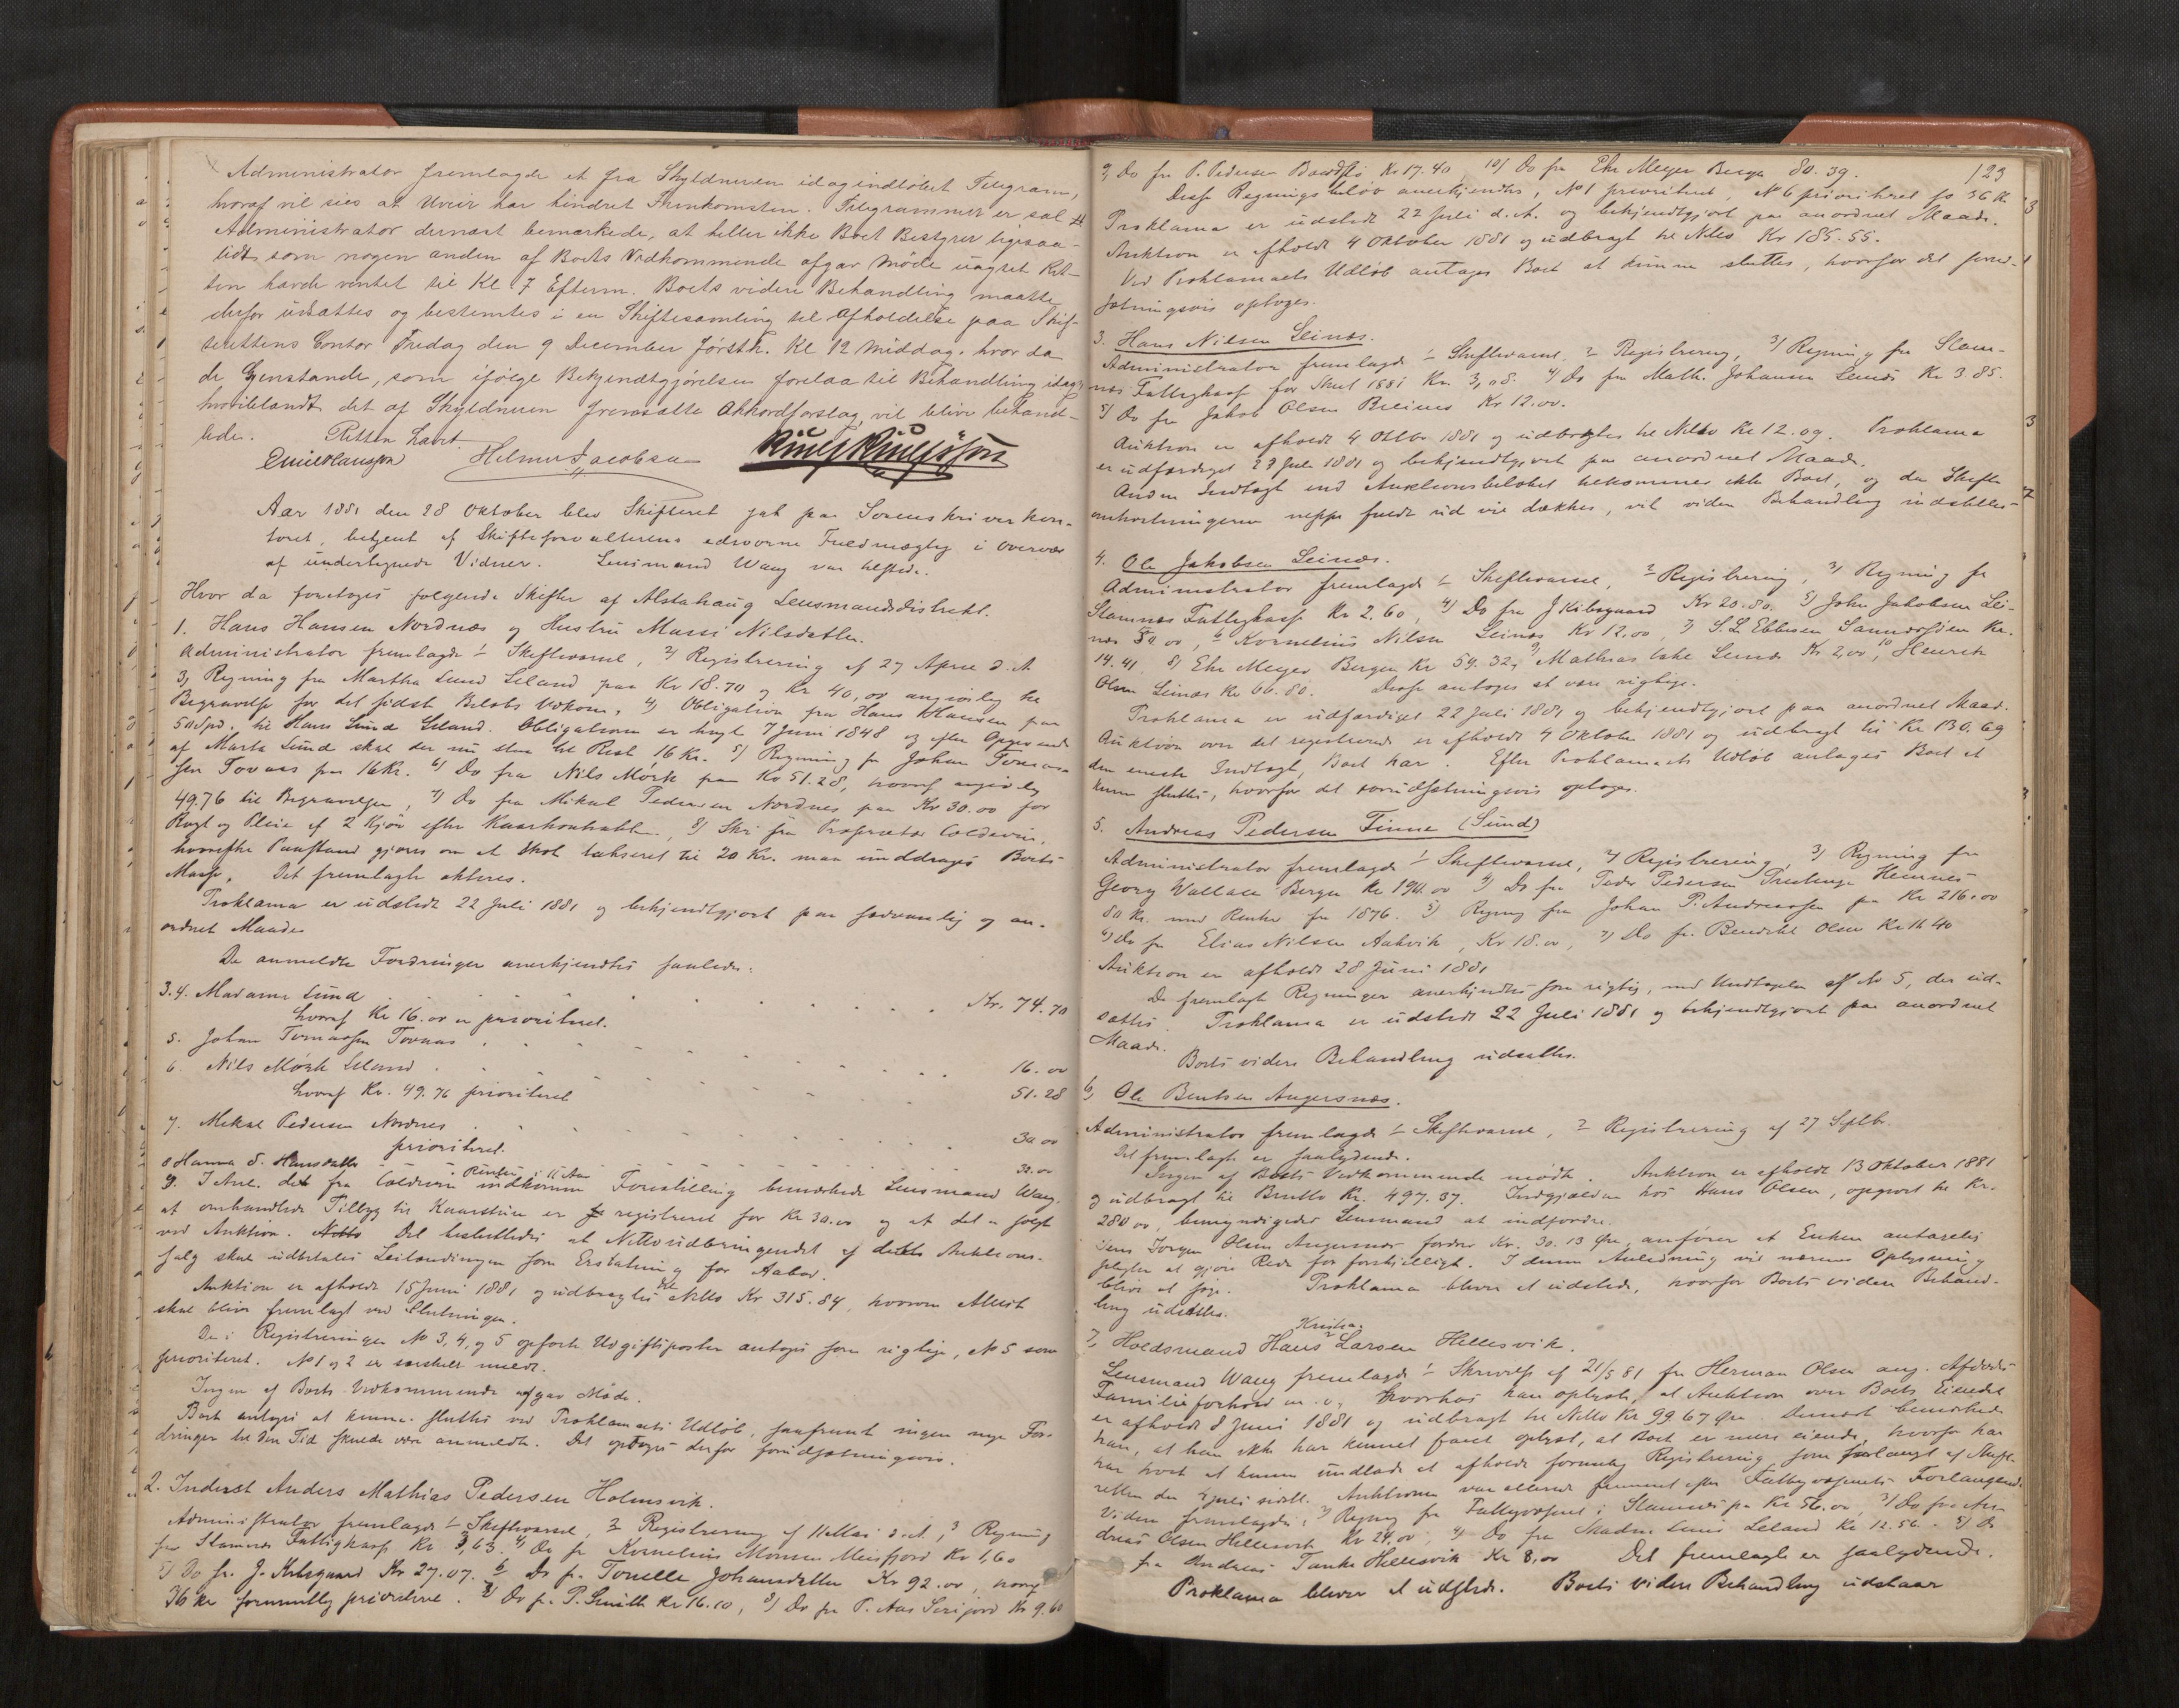 Administrator fremlagde et fra Skyldneren idag indløbet Telegram,
hvoraf vil sies at Uveir har hindret Fremkomsten. Telegrammer er sal.
Administrator dernæst bemærkede, at heller ikke Boet Bestyrer ligesaa-
lidt som nogen anden af Boets Vedkommende afgav Møde uagtet Ret-
ten havde ventet til Kl. 7 Efterm. Boets videre Behandling maatte
derfor udsættes og bestemtes i en Skiftesamling til Afholdelse paa Skif-
terettens Contor Fredag den 9 December førstk. Kl 12 Middag, hvor da
de Gjenstande, som ifølge Bekjendtgjørelsen forelaa til Behandling idag,
hvoriblandt det af Skyldneren fremsatte Akkordforslag vil blive behand-
lede. Retten hævet
Emil Hansson Helmer Jacobsen
Aar 1881 den 28 Oktober blev Skifteret sat paa Sorenskriverkon-
toret, betjent af Skifteforvalterens edsvorne Fuldmægtig i Overvær
af undertegnede Vidner. Lensmand Wang var tilstede.
Hvor da foretoges følgende Skifter af Alstahaug Lensmandsdistrikt.
1. Hans Hansen Nordnæs og Hustru Massi Nilsdatter.
Administrator fremlagde 1/ Skiftevarsel, 2/ Registrering af 27 April d. A.
3, Regning fra Martha Lund Leland paa Kr 18.70 og Kr 40,00 angivelig til
Begravelse for det sidste Beløbs Vedkom., 4/ Obligation fra Hans Hansen paa
50 Spd. til Hans Lund Leland. Obligationen er tingl. 7 Juni 1848 og efter Opgivende
af Marta Lund skal der nu staa til Rest 16 Kr. 5/ Regning fra Johan Tomas-
sen Tovaas paa 16 Kr. 6/ Do fra Nils Mörk paa Kr 51.28, hvoraf angivelig
49.76 til Begravelsen, 7/ Do fra Mikal Pedersen Nordnes paa Kr 30.00 for
Røgt og Pleie af 2 Kjør efter Kaarkontrakten, 8/ Skr. fra Proprietær Coldevin,
hvorefter Paastand gjøres om at Skot takseret til 20 Kr. maa unddrages Boets
Masse. Det fremlagte akteres.
Proklama er udstedt 22 Juli 1881 og bekjendtgjort paa sædvanlig og an-
ordnet Maade.
De anmeldte Fordringer anerkjendtes saaledes:
3.4. Madame Lund Kr. 74.70
hvoraf Kr 16.00 er prioriteret.
5. Johan Tomassen Tovaas 16.00
6. Nils Mörk Leland 51.28
hvoraf Kr. 49.76 prioriteret
7. Mikal Pedersen Nordnes 30.00
prioriteret.
8 Hanna S. Hansdatter 30.00
9. I Anl. det fra Coldevin indkomne Forestilling bemærkede Lensmand Wang,
at omhandlede Tillæg til Kaarstuen er registreret for Kr 30.00 og at det er solgt
ved Auktion. Det besluttedes at Nettoudbringendet af dette Auktions-
salg skal udbetales Leilændingen som Erstatning for Aabod.
Auktion er afholdt 15 Juni 1881 og udbragtes til Netto Kr 315.84, hvorom Attest
skal blive fremlagt ved Slutningen.
De i Registreringen No 3, 4, og 5 opførte Udgiftsposter antoges som rigtige, No 5 som
prioriteret. No 1 og 2 er særskilt meldt.
Ingen af Boets Vedkommende afgav Møde.
Boet antoges at kunne sluttes ved Proklamaets Udløb, saafremt ingen nye For-
dringer til den Tid skulde være anmeldte. Det optoges derfor forudsætningsvis.
2. Inderst Anders Mathias Pedersen Holmsvik.
Administrator fremlagde 1/ Skiftevarsel, 2 Registrering af 11 Mai d. A., 3 Regning
fra Stamnes Fattigkasse Kr 3,63. 4/ Do fr. Kornelius Monsen Meisfjord Kr 1,60
5/ Do fr. J. Kilsgaard Kr 27.07. 6/ Do fr. Tonelle Johansdatter Kr 92.00, hvoraf
36 Kr formentlig prioriteret. 7/ Do fr. P. Smith Kr 16.10, 8/ Do fra P. Aas Kr 9.60
129
9, Do fra P. Pedersen Kr 17.40, 10/ Do fra Ehr Meyer Bergen 80.39.
Disse Regningsbeløb anerkjendtes, No 1 prioriteret, No 6 prioriteret for 36 Kr
Proklama er udstedt 22 Juli d. A. og bekjendtgjort paa anordnet Maade.
Auktion er afholdt 4 Oktober 1881 og udbragt til Netto Kr 185.55.
Ved Proklamaets Udløb antages Boet at kunne sluttes, hvorfor det forud-
sætningsvis optoges.
3. Hans Nilsen Leinæs.
Administrator fremlagde 1/ Skiftevarsel, 2 Registrering, 3/ Regning fra Stam-
næs Fattigkasse for Skat 1881 Kr. 3,08. 4/ Do fra Math. Johansen Leinæs Kr 3.85
5/ Do fra Jakob Olsen Kr 12.00.
Auktion er afholdt 4 Oktbr 1881 og udbragtes til Netto Kr 12.09. Proklama
er udfærdiget 22 Juli 1881 og bekjendtgjort paa anordnet Maade.
Anden Indtægt end Auktionsbeløbet tilkommer ikke Boet, og da Skifte-
omkostningerne neppe fuldt ud vil dækkes, vil videre Behandling indstilles.
4. Ole Jakobsen Leinæs.
Administrator fremlagde 1/ Skiftevarsel, 2 Registrering, 3/ Regning fra
Stamnæs Fattigkasse Kr 2.60, 4/ Do fra J Kilsgaard Kr 20.80. 5/ John Jakobsen Lei-
næs 50.00, 6 Kornelius Nilsen Leinæs Kr 12.00, 7 S. L Ebbesen Sannæssjøen Kr.
14.41, 8/ Ehr Meyer Bergen Kr 59.32, 9/ Mathias Leinæs Kr 2,00, 10 Henrik
Olsen Leinæs Kr 66.80. Disse antoges at være rigtige.
Proklama er udfærdiget 22 Juli 1881 og bekjendtgjort paa anordnet Maade.
Auktion over det registrerede er afholdt 4 Oktober 1881 og udbragt til Kr 130.69
den eneste Indtægt, Boet har. Efter Proklamaets Udløb antages Boet at
kunne sluttes, hvorfor det forudsætningsvis optoges.
5. Andreas Pedersen Finne (Sund)
Administrator fremlagde 1/ Skiftevarsel, 2/ Registrering, 3/ Regning fra
Georg Wallace Bergen Kr 190.00 4/ Do fra Peder Pedersen Hemnes
80 Kr. med Renter fra 1876. 5/ Regning fra Johan P. Andreassen paa Kr 216.00
6/ Do fra Elias Nilsen Aakvik, Kr 18.00, 7/ Do fr. Bendikt Olsen Kr 16 40
Auktion er afholdt 28 Juni 1881
De fremlagte Regninger anerkjendtes som rigtige, med Undtagelse af No 5, der ud-
sattes. Proklama er udstedt 22 Juli 1881 og bekjendtgjort paa anordnet
Maade.
Boets videre Behandling udsattes.
6, Ole Bentsen Angersnæs.
Administrator fremlagde 1/ Skiftevarsel, 2 Registrering af 27 Septbr.
Det fremlagte er saalydende.
Ingen af Boets Vedkommende mødte. Auktion er afholdt 13 Oktober 1881
og udbragt til Brutto Kr. 497.37. Indgjælden hos Hans Olsen, opgivet til Kr.
280 00, bemyndigedes Lensmand at indfordre.
Jens Jørgen Olsen Angersnæs fordrer Kr. 30.13 Øre, anfører at Enken antagelig
pligter at gjøre Rede for forskjelligt. I denne Anledning vil nærmere Oplysning
blive at søge. Proklama bliver at udstede, hvorfor Boets videre Behand-
ling udsættes.
Kristian
7, Holdsmand Hans Larsen Hellesvik.
Lensmand Wang fremlagde 1/ Skrivelse af 21/5 81 fra Herman Olsen ang. Afdødes
Familieforhold m. v., hvorhos han oplyste, at Auktion over Boets Eiendele
er afholdt 8 Juni 1881 og udbragt til Netto Kr 99.67 Øre. Dernæst bemærkede
han, at han ikke har kunnet faaet oplyst, at Boet er mere eiende, hvorfor han
har troet at kunne undlade at afholde formelig Registrering som forlangt af Skifte-
retten den 4 Juli sidstl. Auktionen var allerede fremmet efter Fattigvæsenets Forlangende.
Videre fremlagdes: 2/ Regning fra Fattigvæsenet i Stamnes paa Kr 56.00, 3/ Do fra An-
dreas Olsen Hellesvik Kr 24.00, 4/ Do fra Madm. Lund Leland Kr 12.56. 5/ Do
fra Andreas Tanke Hellesvik Kr 8,00 Det fremlagte er saalydende.
Proklama bliver at udstede. Boets videre Behandling udstaar